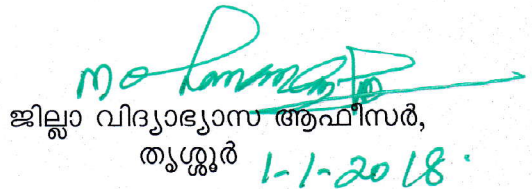 ജില്ലാ വിദ്യാഭ്യാസ ആഫീസർ,
തൃശ്ശൂർ 1-1-2018.